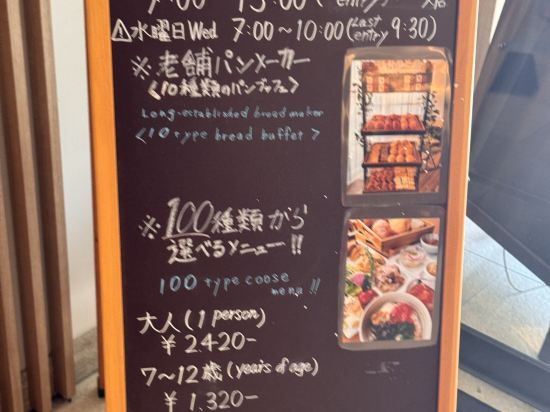 7:00 13:00 (entry
⚠水曜日Wed 7:00～10:00(Last entry 9:30)
※老舗パンメーカー
〈10種類のパンブッフェ〉
Long-established bread maker
<10 type bread buffet>
※100種類から
選べるメニュー!!
100 type coose
menu !!
大人(1 person)
¥2420-
7～12歳(years of age)
¥1,320-